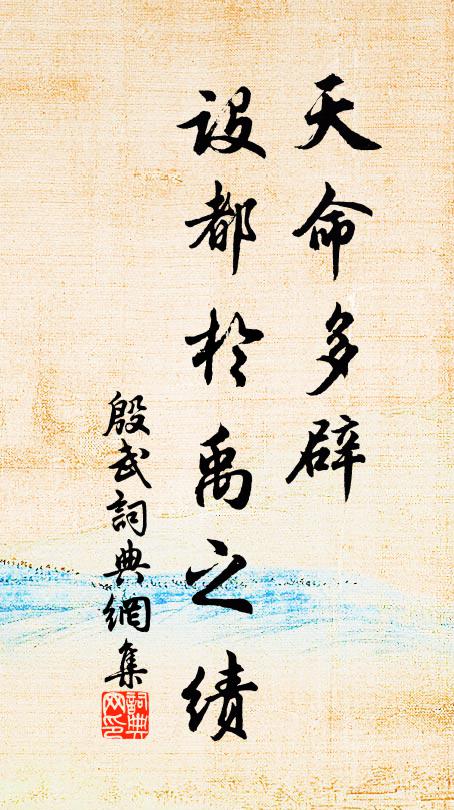 天命多辟
设都於禹之绩
殷武詞典網集
詞典网印